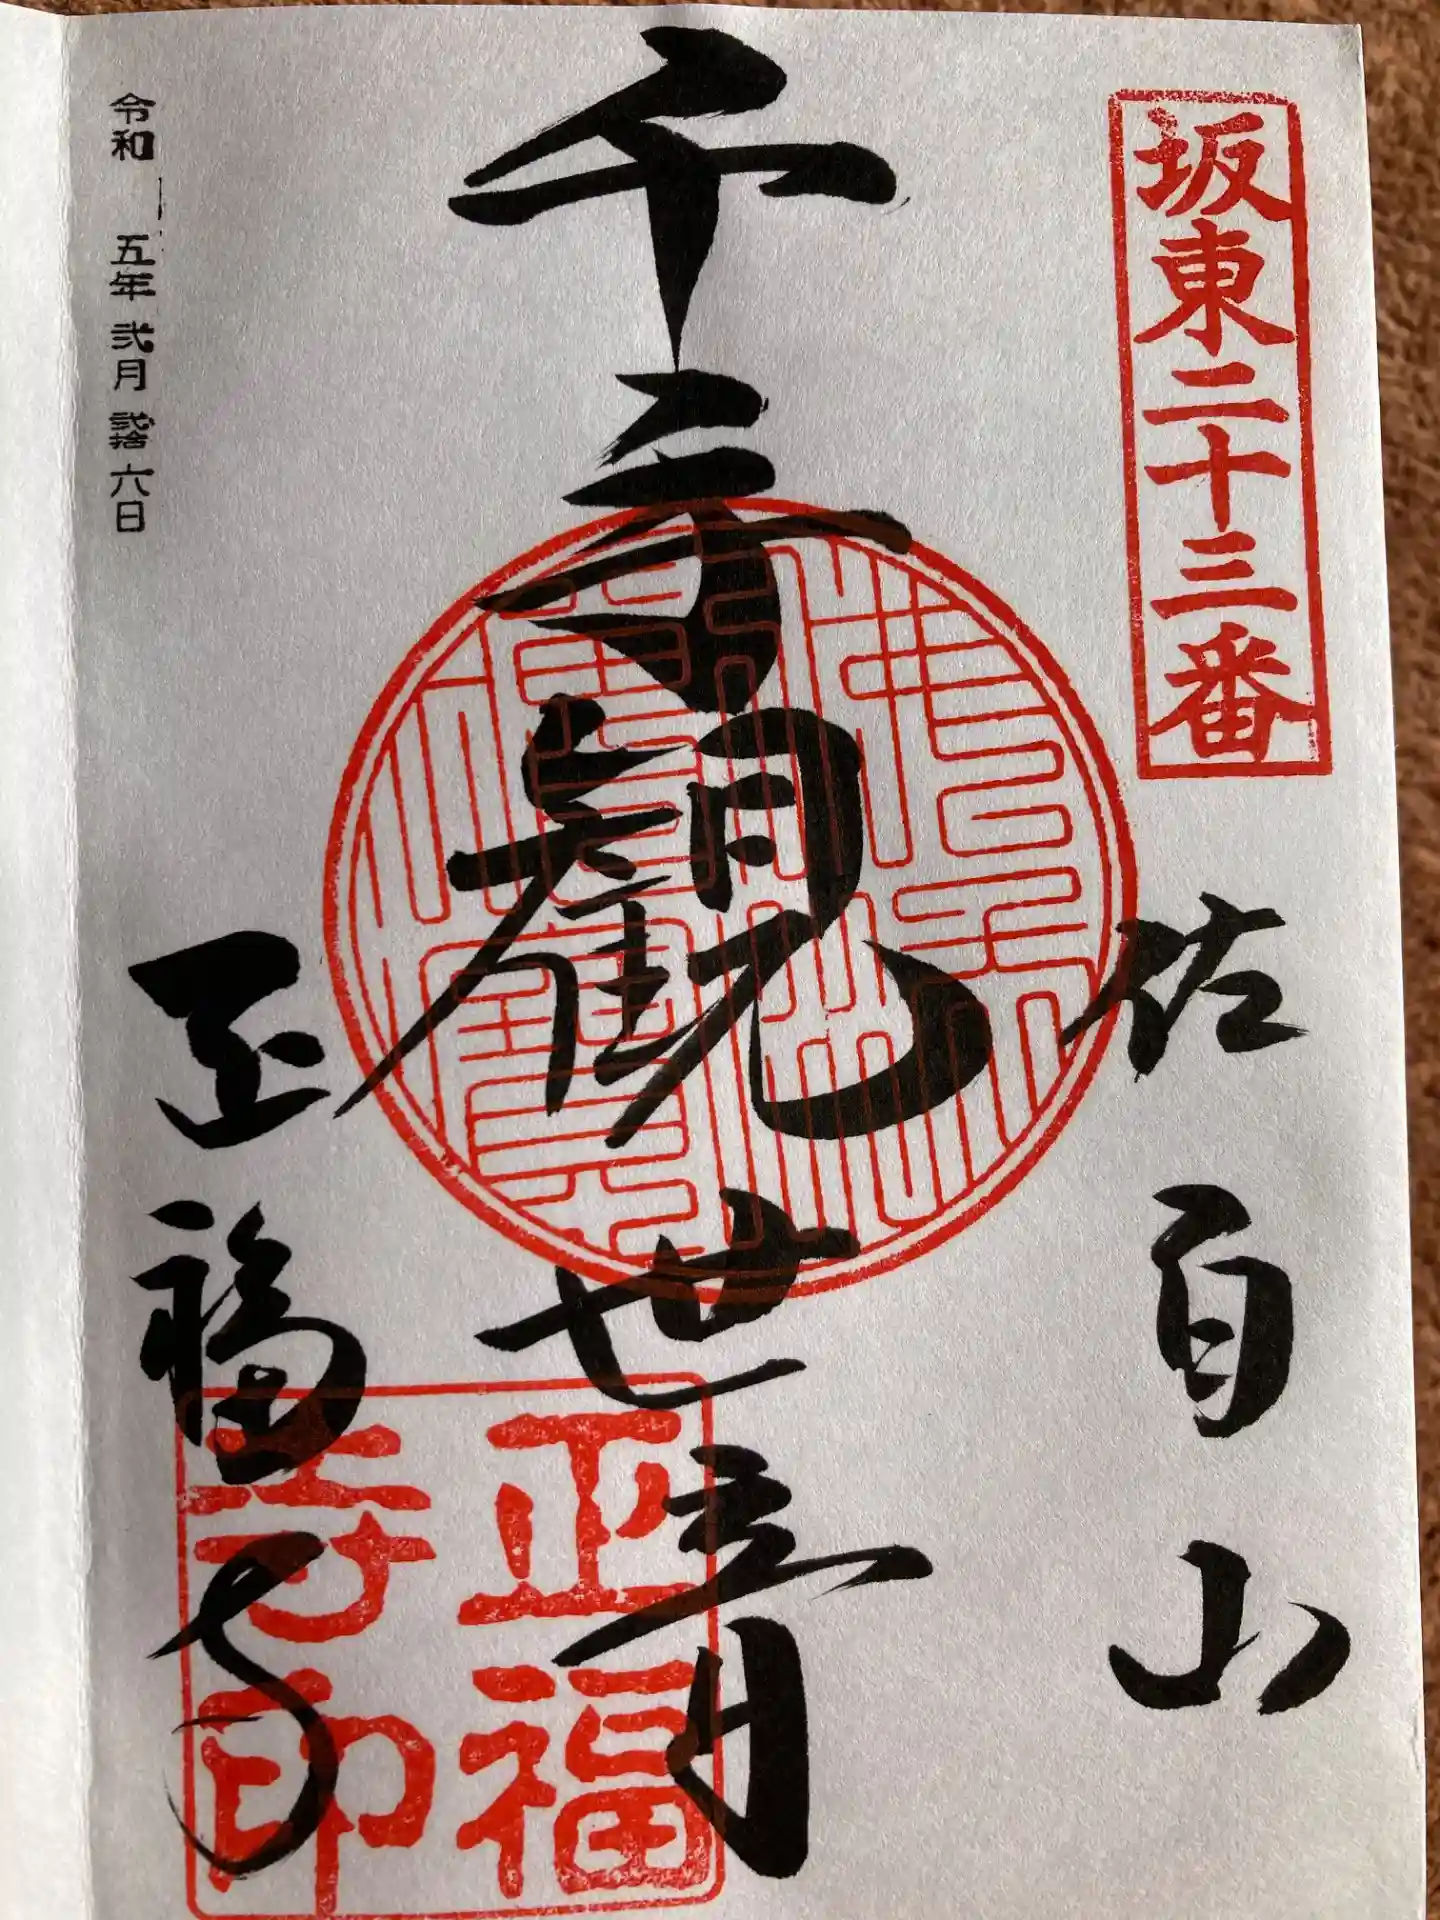 坂東二十三番
佐白山
千手観世音
正福寺
正福寺印
令和 五年 弐月 弐拾六日